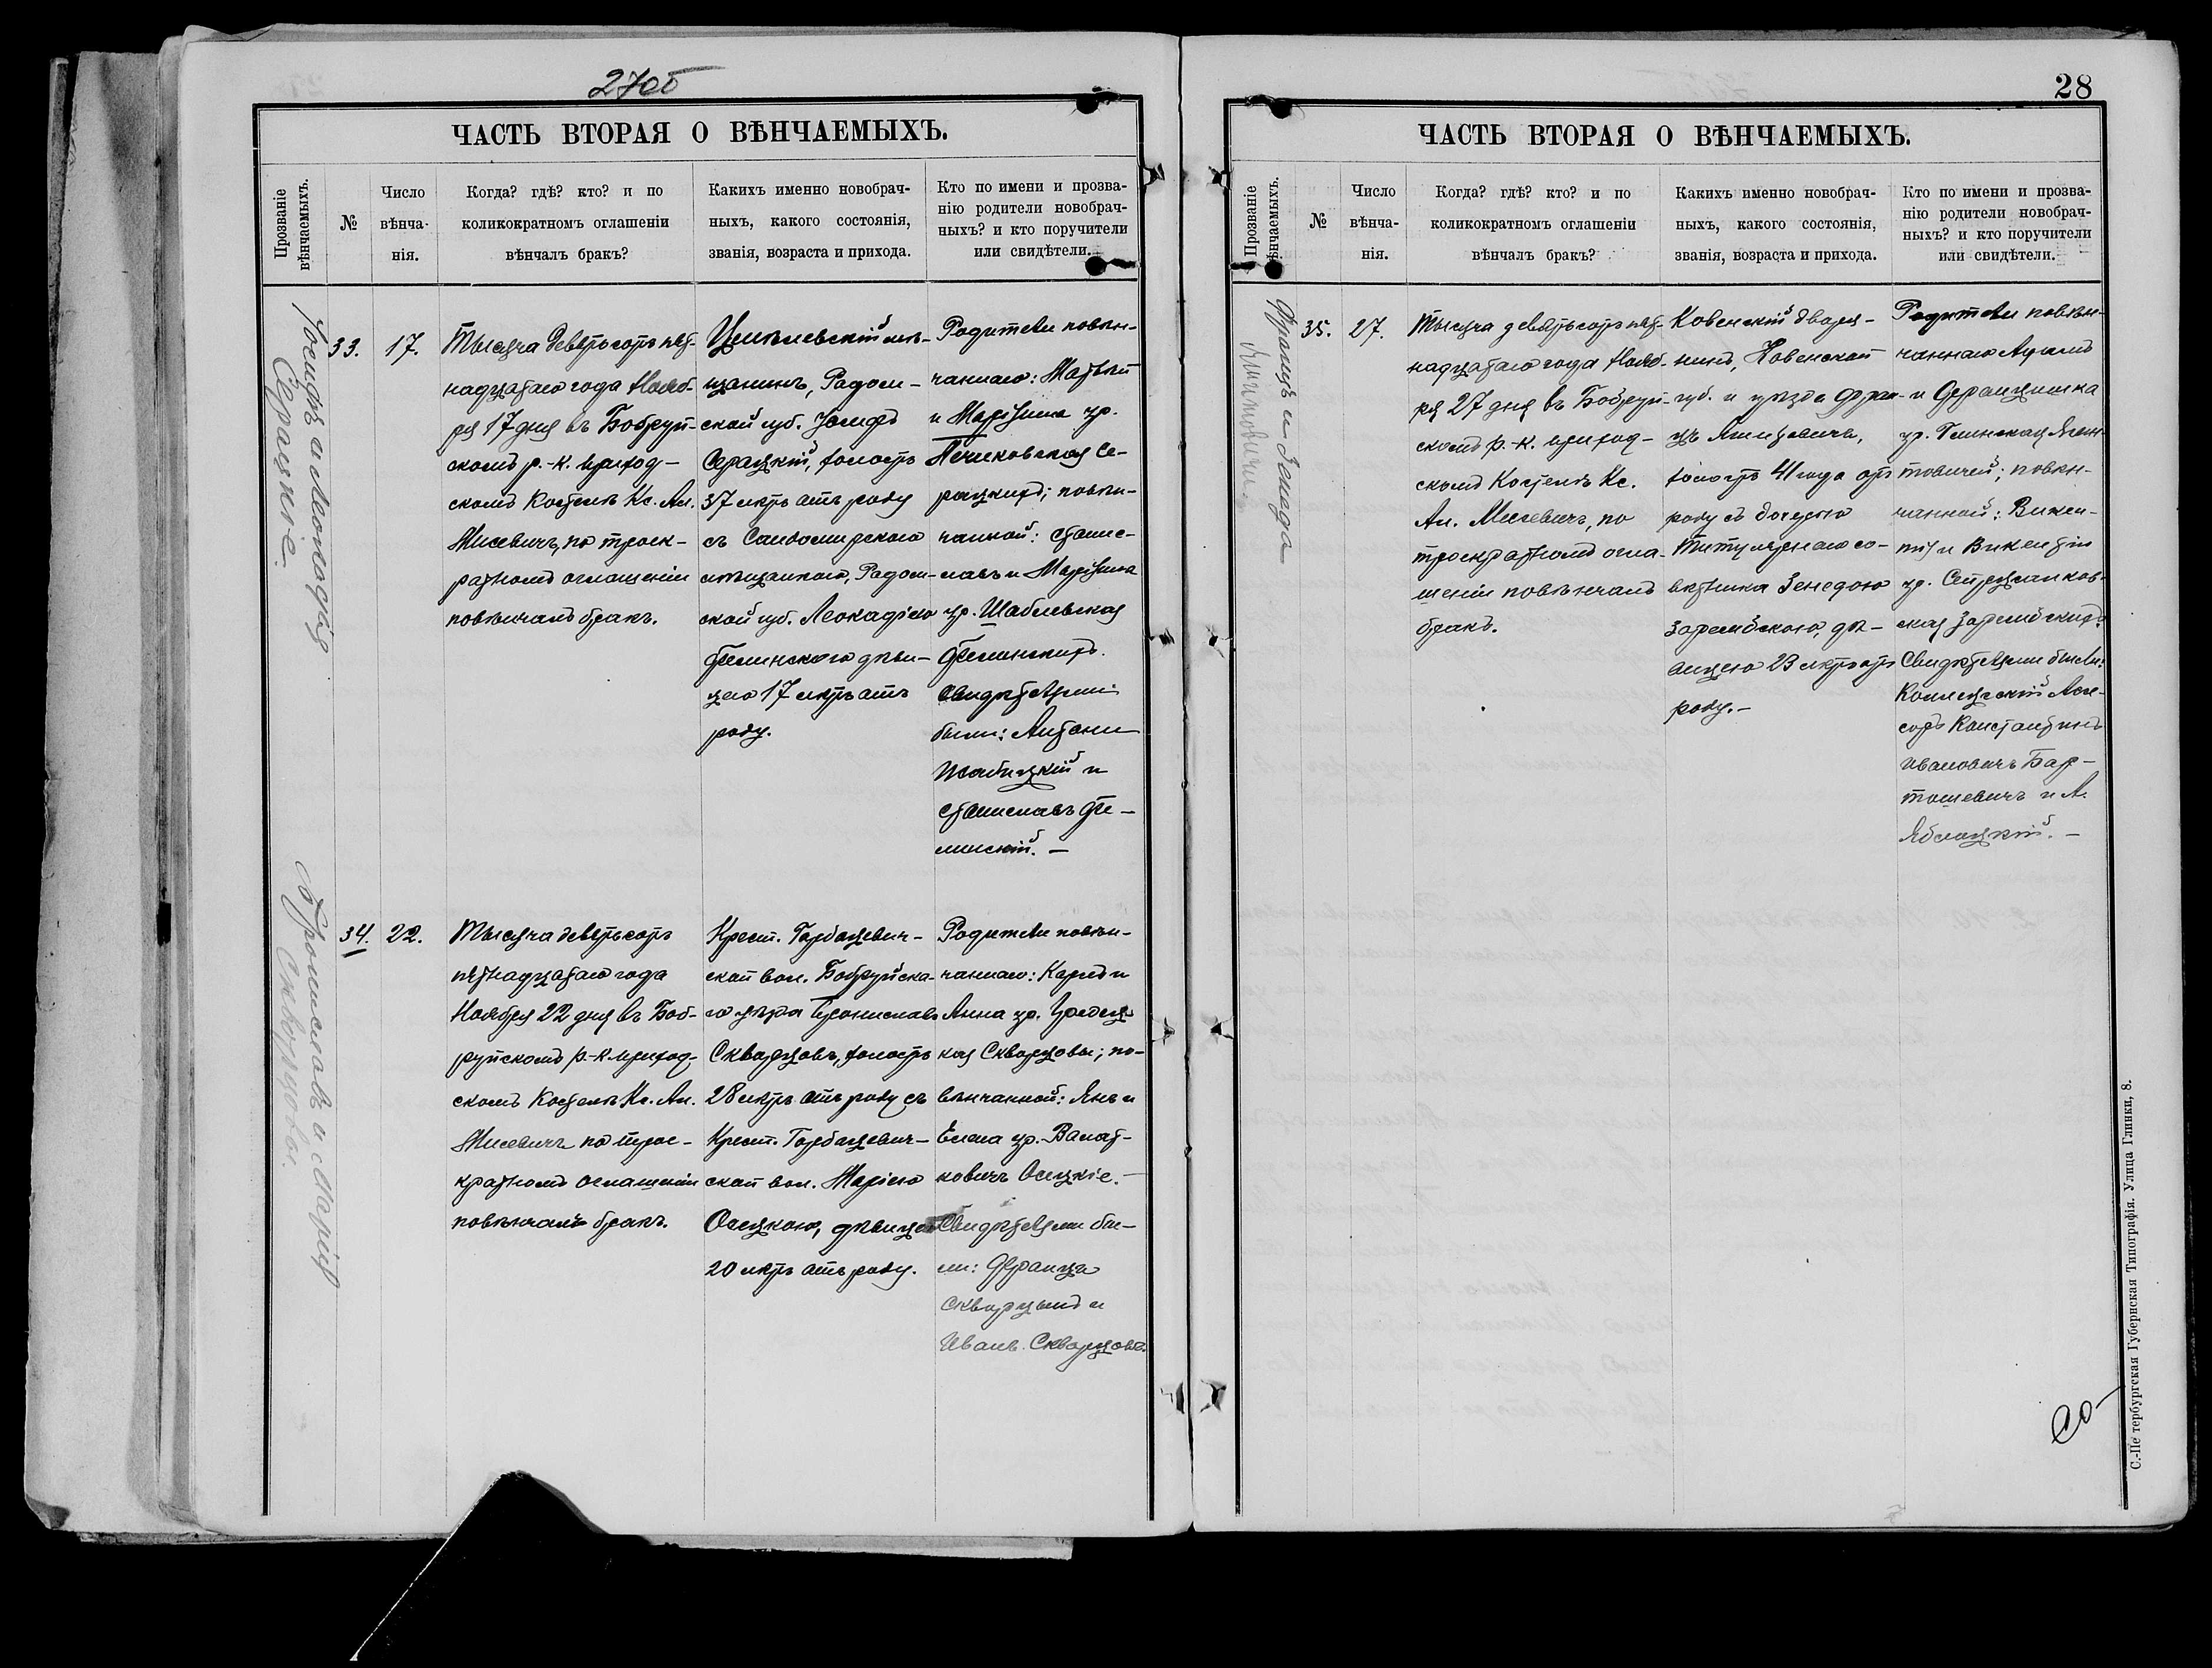 27об
ЧАСТЬ ВТОРАЯ О ВѢНЧАЕМЫХЪ.
Прозваніе
вѣнчаемыхъ.
№
Число
вѣнча-
нія.
Когда? гдѣ? кто? и по
коликократномъ оглашеніи
вѣнчалъ бракъ?
Какихъ именно новобрач-
ныхъ, какого состоянія,
званія, возраста и прихода.
Кто по имени и прозва-
нію родители новобрач-
ныхъ? и кто поручители
или свидѣтели.
Іосифъ и Леокадія
Серацкіе.
33.
17.
Тысяча девятьсотъ пят-
надцатаго года Нояб-
ря 17 дня въ Бобруй-
скомъ р.-к. приход-
скомъ костелѣ Кс. Ал.
Мисевичъ, по троек-
ратномъ оглашеніи
повѣнчалъ бракъ.
мѣ-
щанинъ, Радом-
ской губ. Іосифъ
Серацкій, холостъ
37 лѣтъ отъ роду
съ Сандомирского
мѣщанкою, Радом-
ской губ. Леокадіею
Фелинского дѣви-
цею 17 лѣтъ отъ
роду.
Родители повѣн-
чаннаго: Матвѣй
и Маріянна ур.
Се-
рацкихъ; повѣн-
чанной: Станис-
лавъ и Маріянна
ур. Шаблевская
Фелинскихъ.
Свидѣтелями
были: Антони
и
Станиславъ Фе-
линскій.
Брониславъ и Марія
Скворцовы.
34.
22.
Тысяча девятьсотъ
пятнадцатаго года
Ноября 22 дня въ Боб-
руйскомъ р.-к приход-
скомъ Костелѣ Кс. Ал.
Мисевичъ по трое-
кратномъ оглашеніи
повѣнчалъ бракъ.
Крест. Горбацевич-
ской вол. Бобруйска-
го уѣзда Брониславъ
Скворцовъ, холостъ
28 лѣтъ отъ роду съ
Крест. Горбацевич-
ской вол. Маріею
Осецкою, дѣвицею
20 лѣтъ отъ роду.
Родители повѣн-
чаннаго: Карлъ и
Анна ур.
Скворцовы; по-
вѣнчанной: Янъ и
Елена ур. Валат-
ковичъ Осецкіе.
Свидѣтелями бы-
ли: Францъ
Скворцовъ и
Иванъ Скворцовъ.
28
ЧАСТЬ ВТОРАЯ О ВѢНЧАЕМЫХЪ.
Прозваніе
вѣнчаемыхъ.
№
Число
вѣнча-
нія.
Когда? гдѣ? кто? и по
коликократномъ оглашеніи
вѣнчалъ бракъ?
Какихъ именно новобрач-
ныхъ, какого состоянія,
званія, возраста и прихода.
Кто по имени и прозва-
нію родители новобрач-
ныхъ? и кто поручители
или свидѣтели.
Францъ и Зенеда
35.
27.
Тысяча девятьсотъ пят-
надцатаго года Нояб-
ря 27 дня въ Бобруй-
скомъ р.-к. приход-
скомъ Костелѣ Кс.
Ал. Мисевичъ, по
троекратномъ огла-
шеніи повѣнчалъ
бракъ.
Ковенскій дворя-
нинъ, Ковенской
губ. и уѣзда Фран-
цъ
холостъ 41 года отъ
роду съ дочерью
Титулярнаго со-
вѣтника Зенедою
Зарембскою, дѣ-
вицею 23 лѣтъ отъ
роду.-
Родители повѣн-
чаннаго Адамъ
и Францишка
ур.
повѣн-
чанной: Викен-
тій и Викентія
ур.
Зарембскихъ.
Свидѣтелями были:
Коллежскій Асес-
соръ Константинъ
Ивановичъ Бар-
тошевичъ и А.
Яблоцкій.-
Со-
С.-Петербургская Губернская Типографія. Улица Глинки, 8.